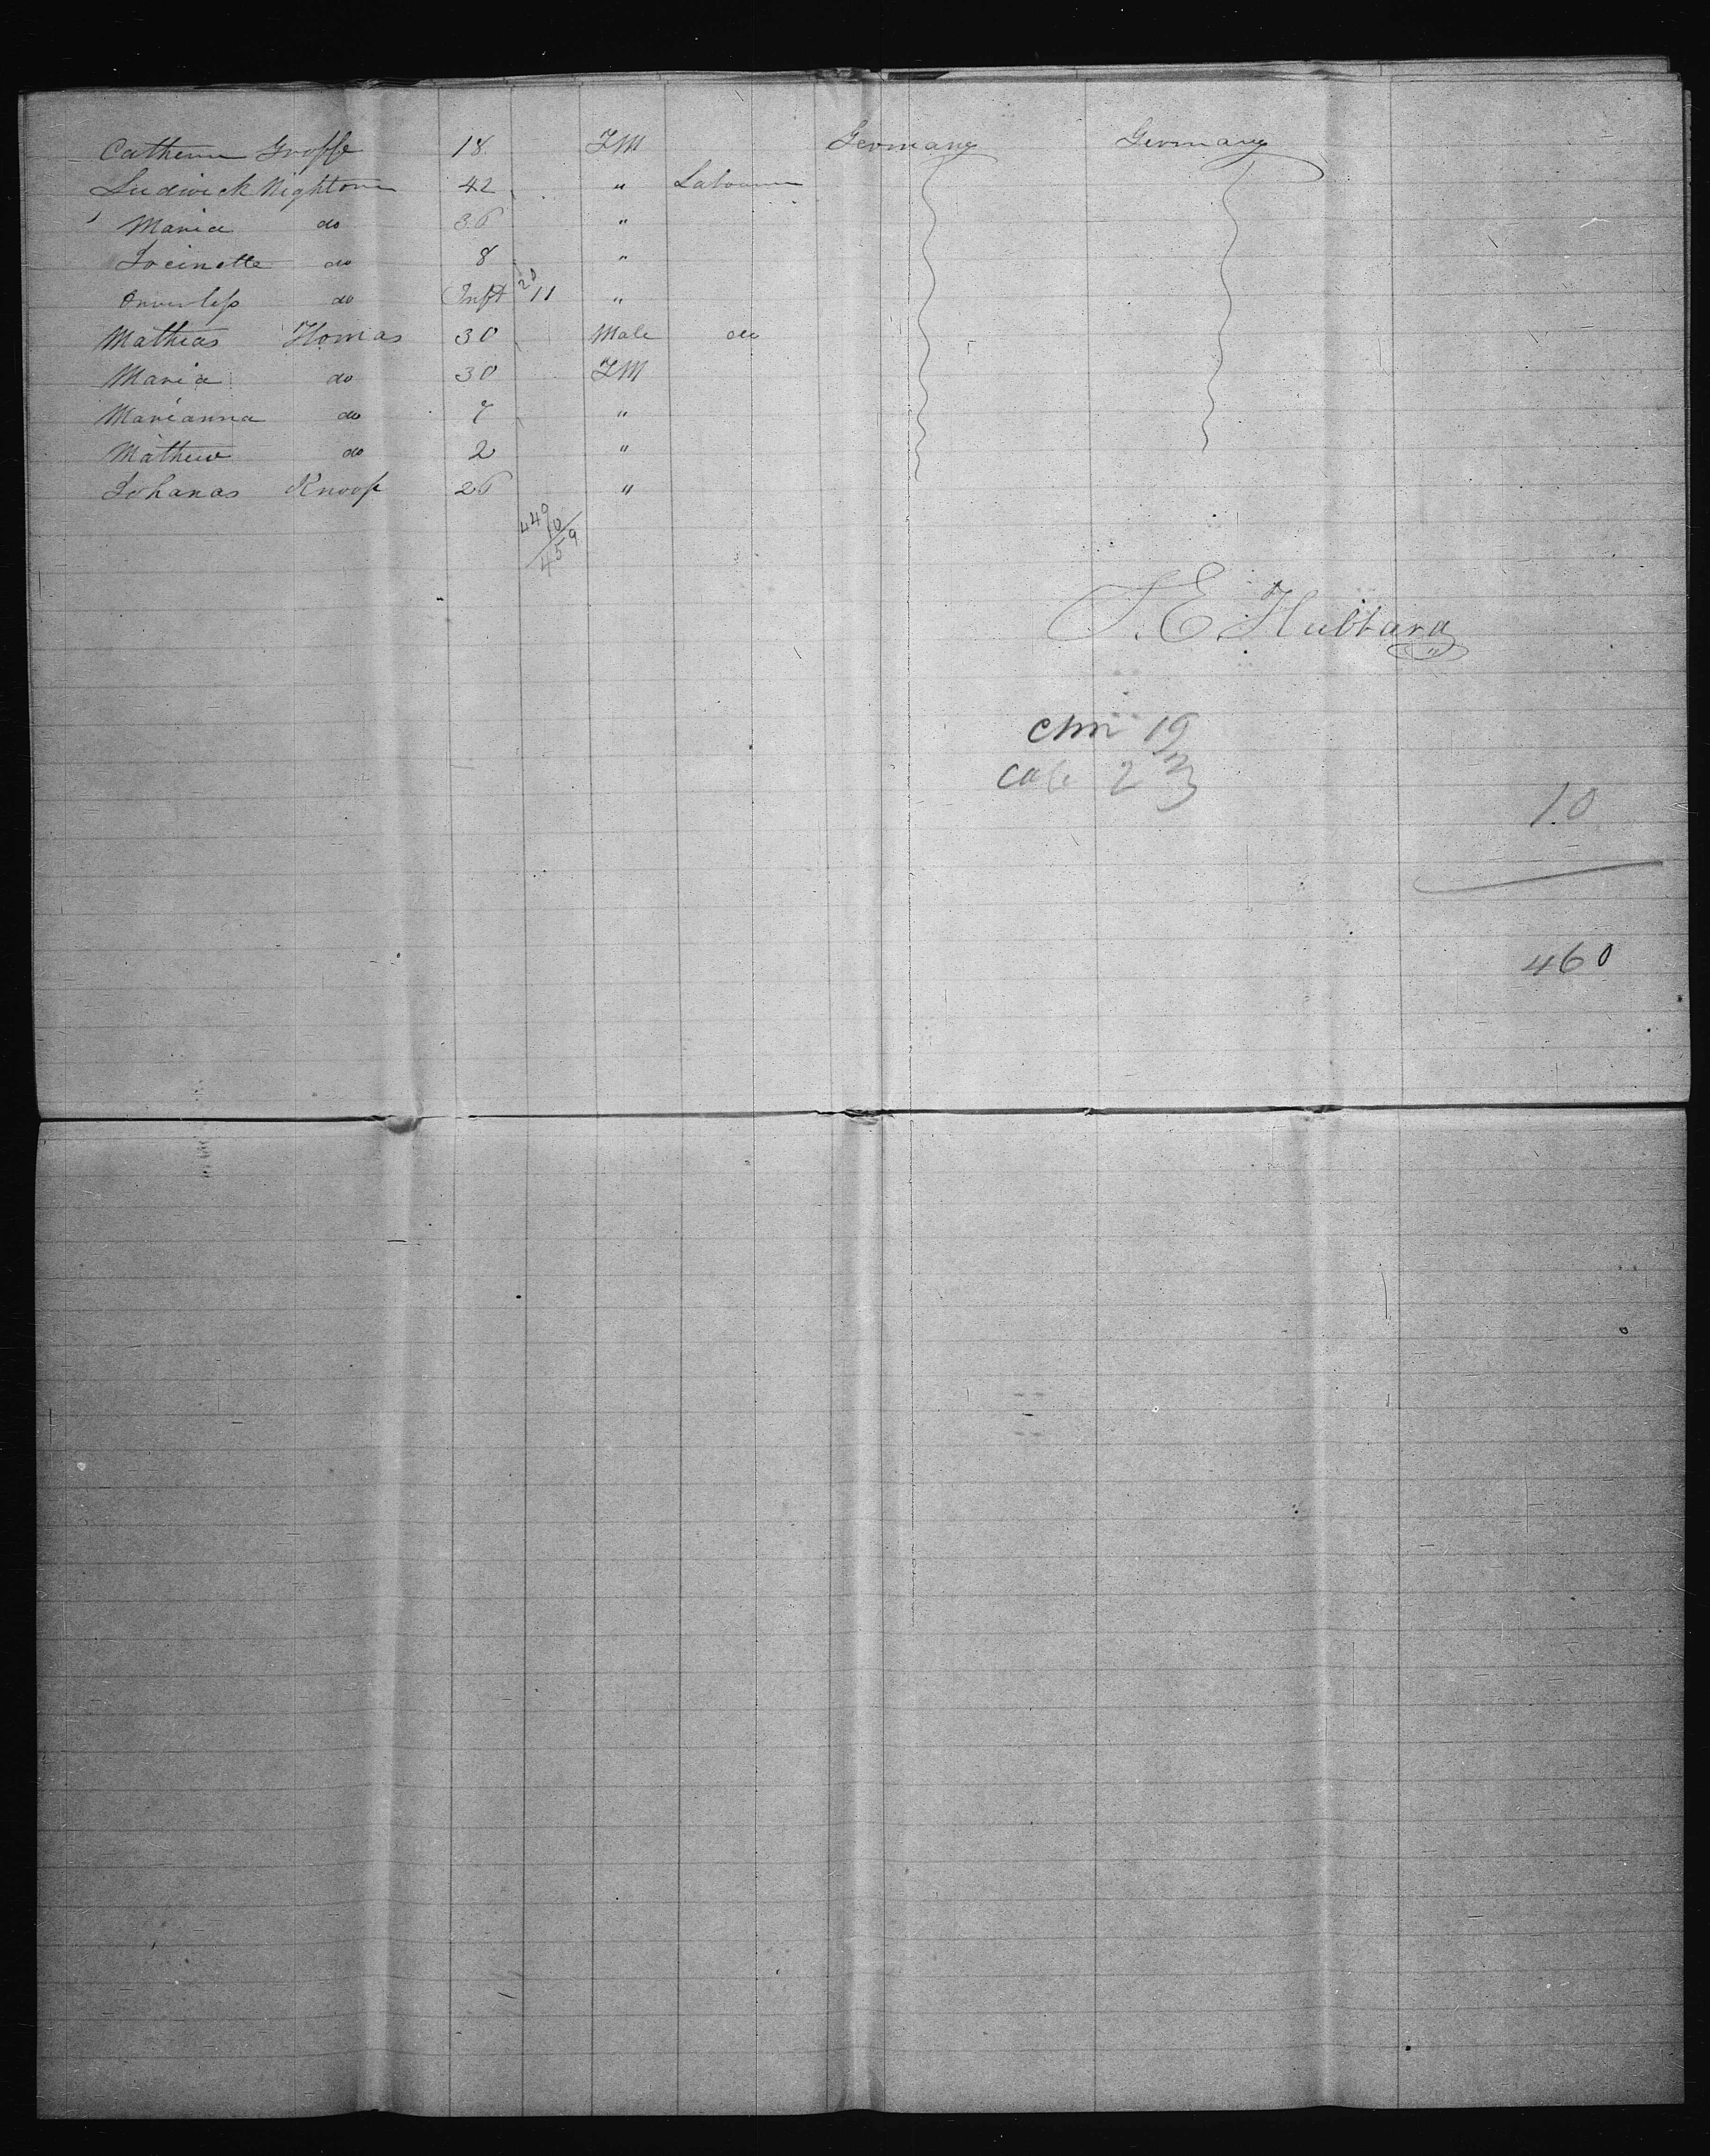 Catherine Groffe 18 FM Germany Germany
Ludwick Nightom 42 " Labourer
Maria do 36 "
do 8 "
do Inft 11 "
Mathias Homas 30 Male do
Maria do 30 FM
Marianna do 7 "
Mathew do 2 "
Johanas Knoop 26 "
449
10
459
S. E. Hubbard
chn 19
cab 23
10
460